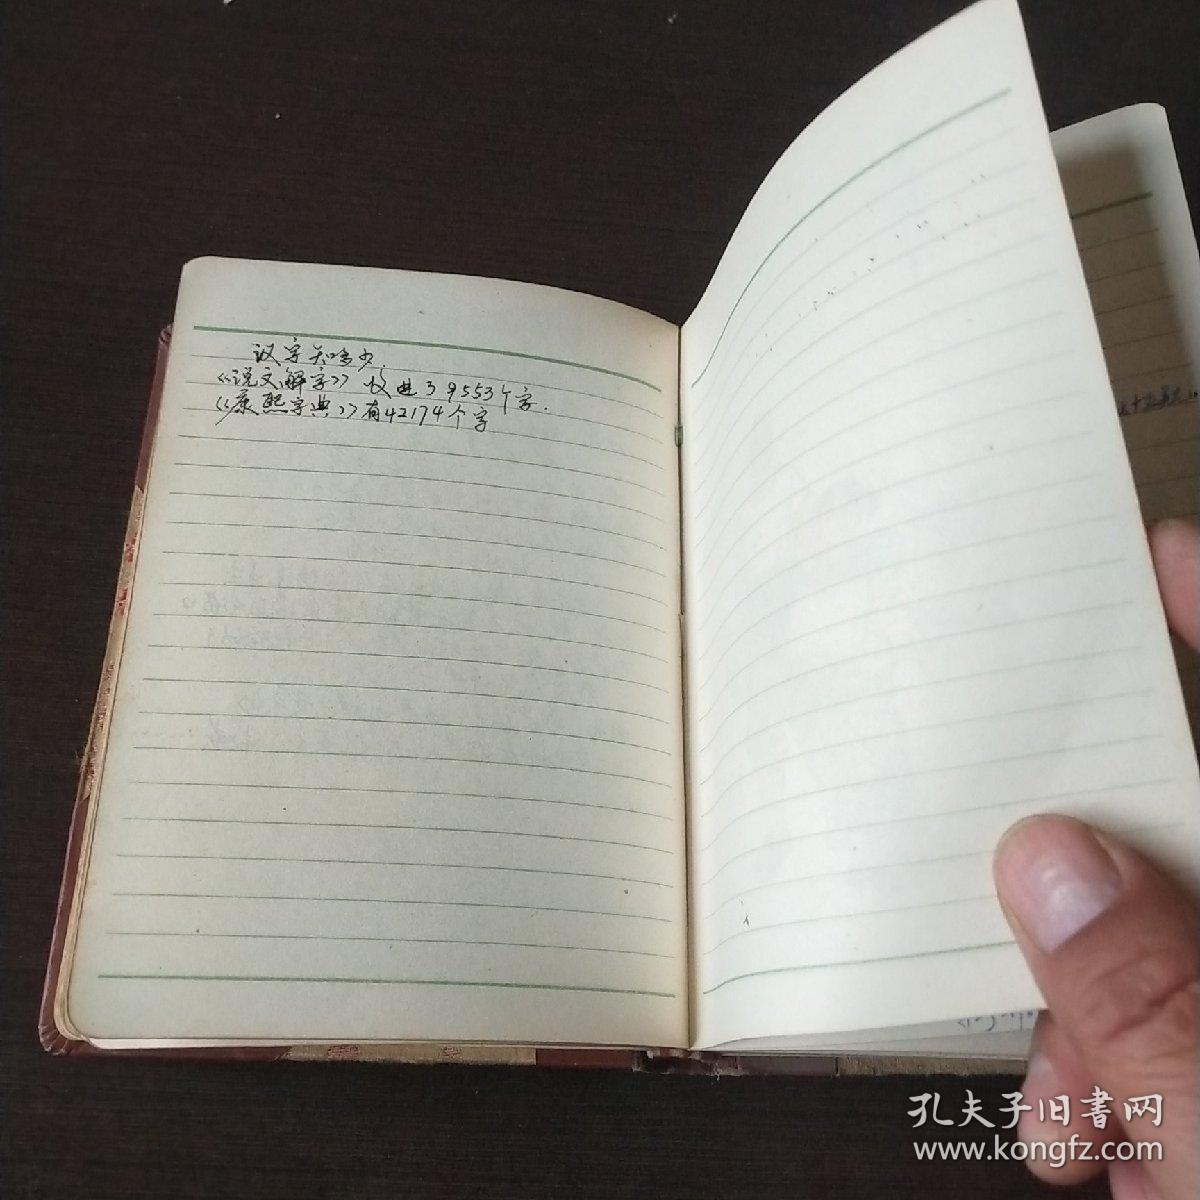 汉字知多少.
《说文解字》收进了9553个字.
《康熙字典》有42174个字
孔夫子旧书网
www.kongfz.com